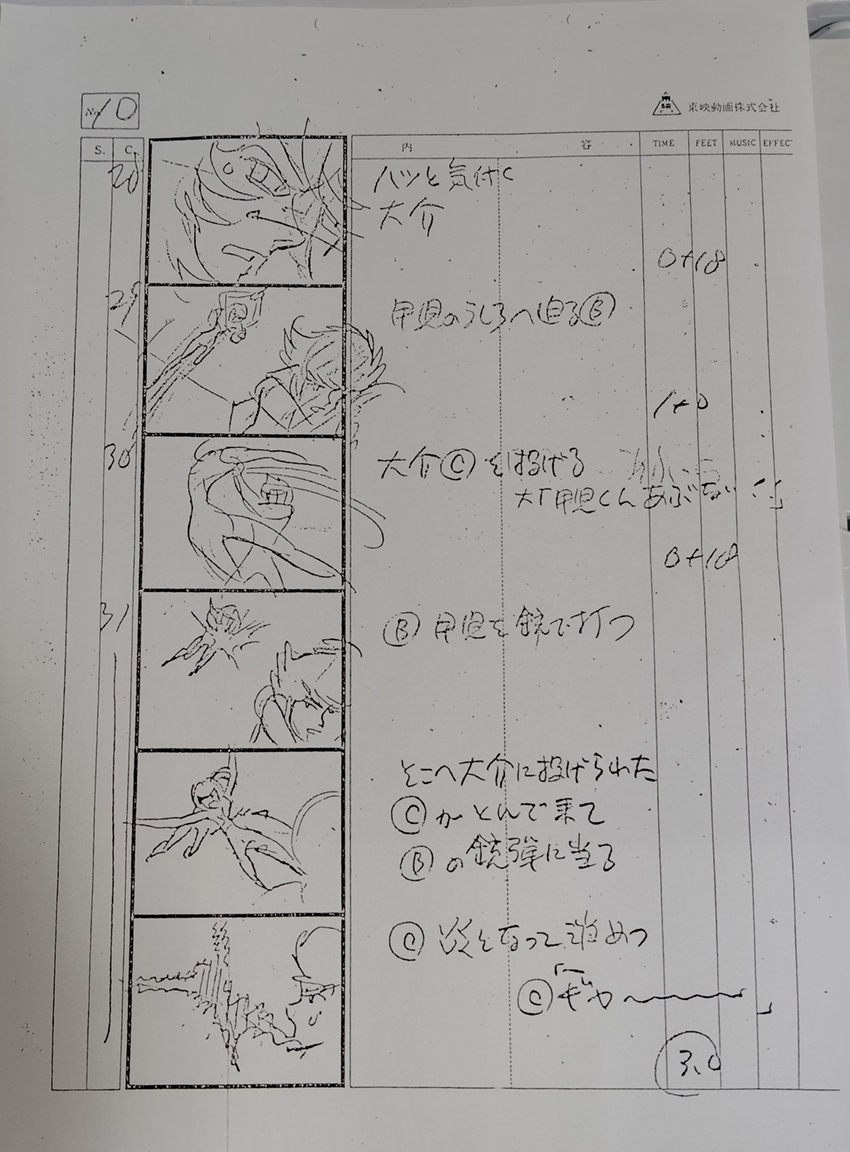 No. 10
東映動画株式会社
S. C. 内 容 TIME FEET MUSIC EFFECT
28
ハッと気付く
大介
0+18
29
甲児のうしろへ迫るⒷ
1+0
30
大介Ⓒを投げる
大「甲児くんあぶない!」
0+18
31
Ⓑ甲児を銃で打つ
そこへ大介に投げられた
Ⓒがとんで来て
Ⓑの銃弾に当る
Ⓒ炎となって
Ⓒ「ギャ〜」
3.0